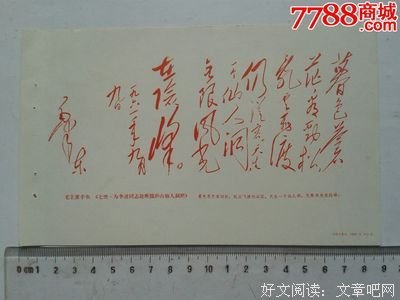 7788商城
.com
暮色苍
茫看劲松
乱云飞渡
仍从容天生
一个仙人洞
无限风光
在险峰。
一九六一年九月
九日
毛泽东
毛主席手书 《七绝·为李进同志题所摄庐山仙人洞照》
暮色苍茫看劲松，乱云飞渡仍从容。天生一个仙人洞，无限风光在险峰。
0cm 1 2 3 4 5 6 7 8 9 10 11 12 13 14 15 16 17 18 19
好文阅读：文章吧网